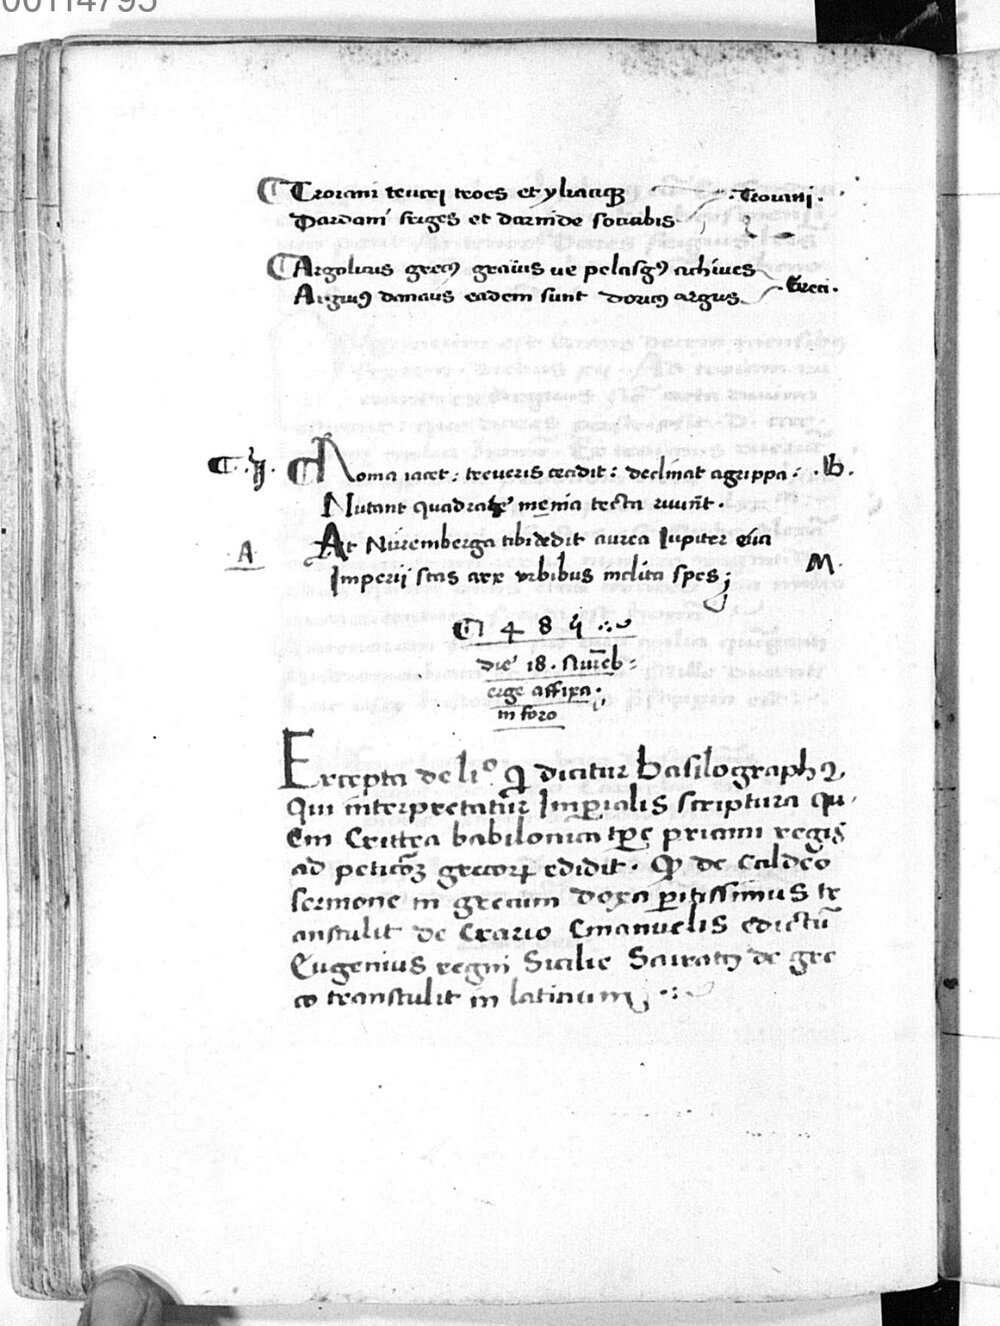 00114795
Troiani teucri troes et yliacique
Dardani friges et darnide sotiabis
.Troiani.
Argolicus grecus graius ve pelasgus achives
Argivus danaus eadem sunt doricus argus
.Greci.
C. ij. Roma iacet: treveris cecidit: declinat agrippa: .b.
Nutant quadrate menia tecta ruunt.
At Nuremberga tibi dedit aurea Iupiter
A M.
Imperij stas arx urbibus inclita spes;
1 4 8
die 18. Nureb
erge affixa.
in foro
Excepta de lio qui dicitur Basilographus
Qui interpretatur Imperialis scriptura qu
em Erittea babilonica tpre priami regis
ad peticonem grecorum edidit. Quod de caldeo
sermone in grecum doxa peritissimus tr
anstulit de Erario Emanuelis edictum
Eugenius regni Sicilie de gre
co transtulit in latinum;